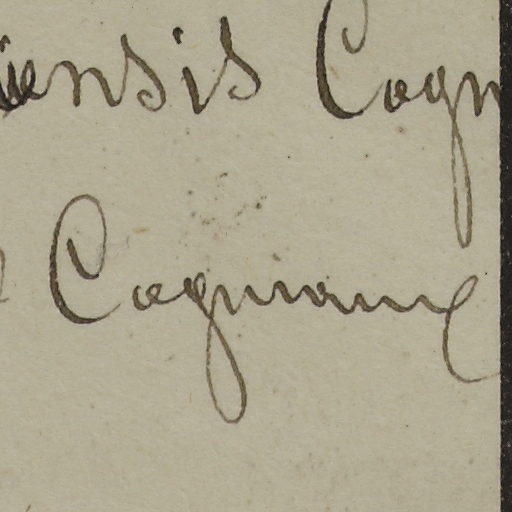 iensis Cogn
Cogniaux